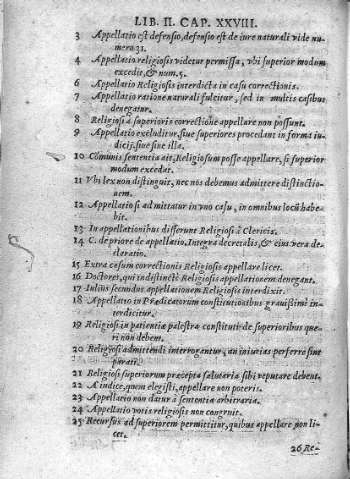 LIB. II. CAP. XXVIII.
3 Appellatio est defensio, defensio est de iure naturali vide nu-
mero 31.
4 Appellatio religiosis videtur permissa, vbi superior modum
excedit, & num. 5.
6 Appellatio Religiosis interdicta in casu correctionis.
7 Appellatio ratione naturali fulcitur, sed in multis casibus
denegatur.
8 Religiosi à superioris correctione appellare non possunt.
9 Appellatio excluditur, siue superiores procedant in forma iu-
dicij, siue sine illa.
10 Comunis sententia ait, Religiosum posse appellare, si superior
modum excedat.
11 Vbi lex non distinguit, nec nos debemus admittere distinctio-
nem.
12 Appellatio si admittatur in vno casu, in omnibus locũ habe-
bit.
13 In appellationibus differunt Religiosi à Clericis.
14 C. de priore de appellatio. Integra decretalis, & eius vera de-
claratio.
15 Extra casum correctionis Religiosis appellare licet.
16 Doctores, qui indistinctè Religiosis appellationem denegant.
17 Iulius secundus appellationem Religiosis interdixit.
18 Appellatio in Prædicatorum constitutionibus grauissimè in-
terdicitur.
19 Religiosi in patientiæ palestra constituti de superioribus que-
ri non debem.
20 Religiosi admittendi interrogantur, an iniurias perferre sint
parati.
21 Religiosi superiorum præcepta salutaria sibi reputare debent.
22 A iudice, quem elegisti, appellare non poteris.
23 Appellatio non datur à sententia arbitraria.
24 Appellatio votis religiosis non congruit.
25 Recursus ad superiorem permittitur, quibus appellare non li-
cet.
26 Re-